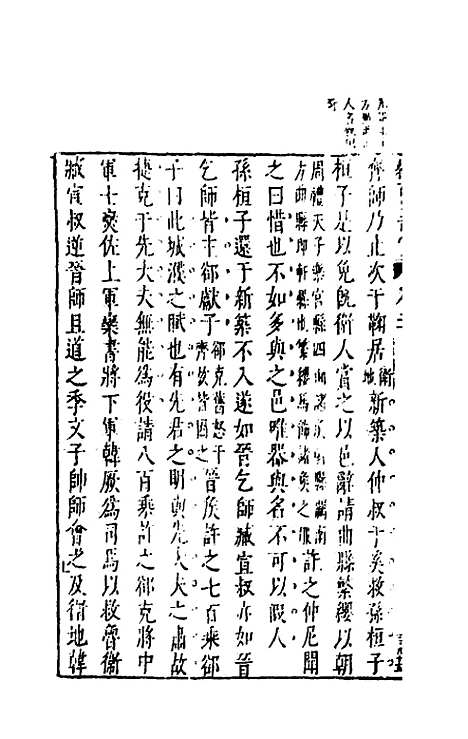 人名
齊師乃止次于鞫居衛地新築人仲叔于奚救孫桓子
桓子是以免旣衛人賞之以邑辭請曲縣繁纓以朝
周禮天子樂宮縣四面諸侯軒縣闕南方曲縣即軒縣也繁纓馬飾諸矦之服許之仲尼聞
之曰惜也不如多與之邑唯器與名不可以假人
孫桓子還于新築不入遂如晉乞師臧宣叔亦如晉
乞師皆主郤獻子郤克舊怒于齊故皆因之晉矦許之七百乗郤
子曰此城濮之賦也有先君之明與先大夫之肅故
捷克于先大夫無能爲役請八百乗許之郤克將中
軍士燮佐上軍欒書將下軍韓厥爲司馬以救魯衞
臧宣叔逆晉師且道之季文子帥師會之及衞地韓